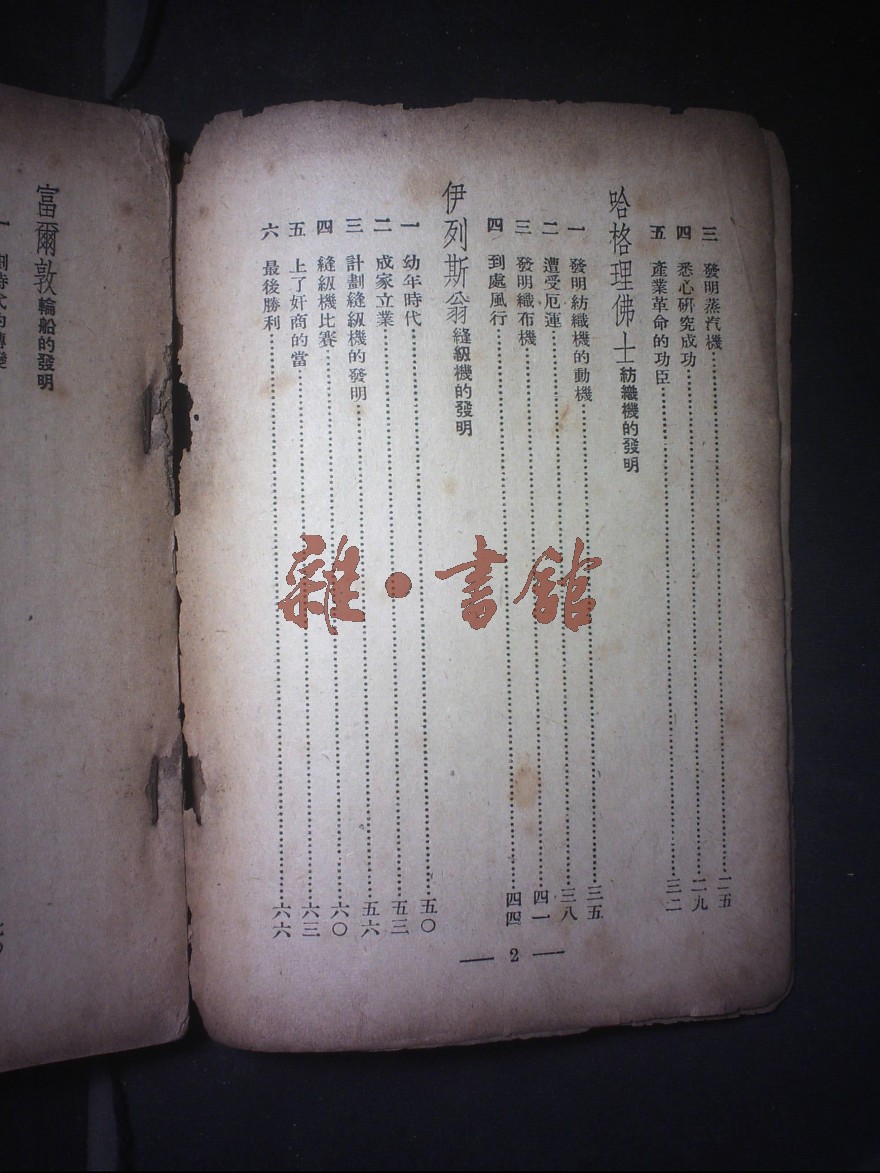 三 發明蒸汽機 二五
四 悉心研究成功 二九
五 產業革命的功臣 三二
哈格理佛士 紡織機的發明
一 發明紡織機的動機 三五
二 遭受厄運 三八
三 發明織布機 四一
四 到處風行 四四
伊列斯翁 縫級機的發明
一 幼年時代 五〇
二 成家立業 五三
三 計劃縫級機的發明 五六
四 縫級機比賽 六〇
五 上了奸商的當 六三
六 最後勝利 六六
— 2 —
富爾敦 輪船的發明
雜·書館